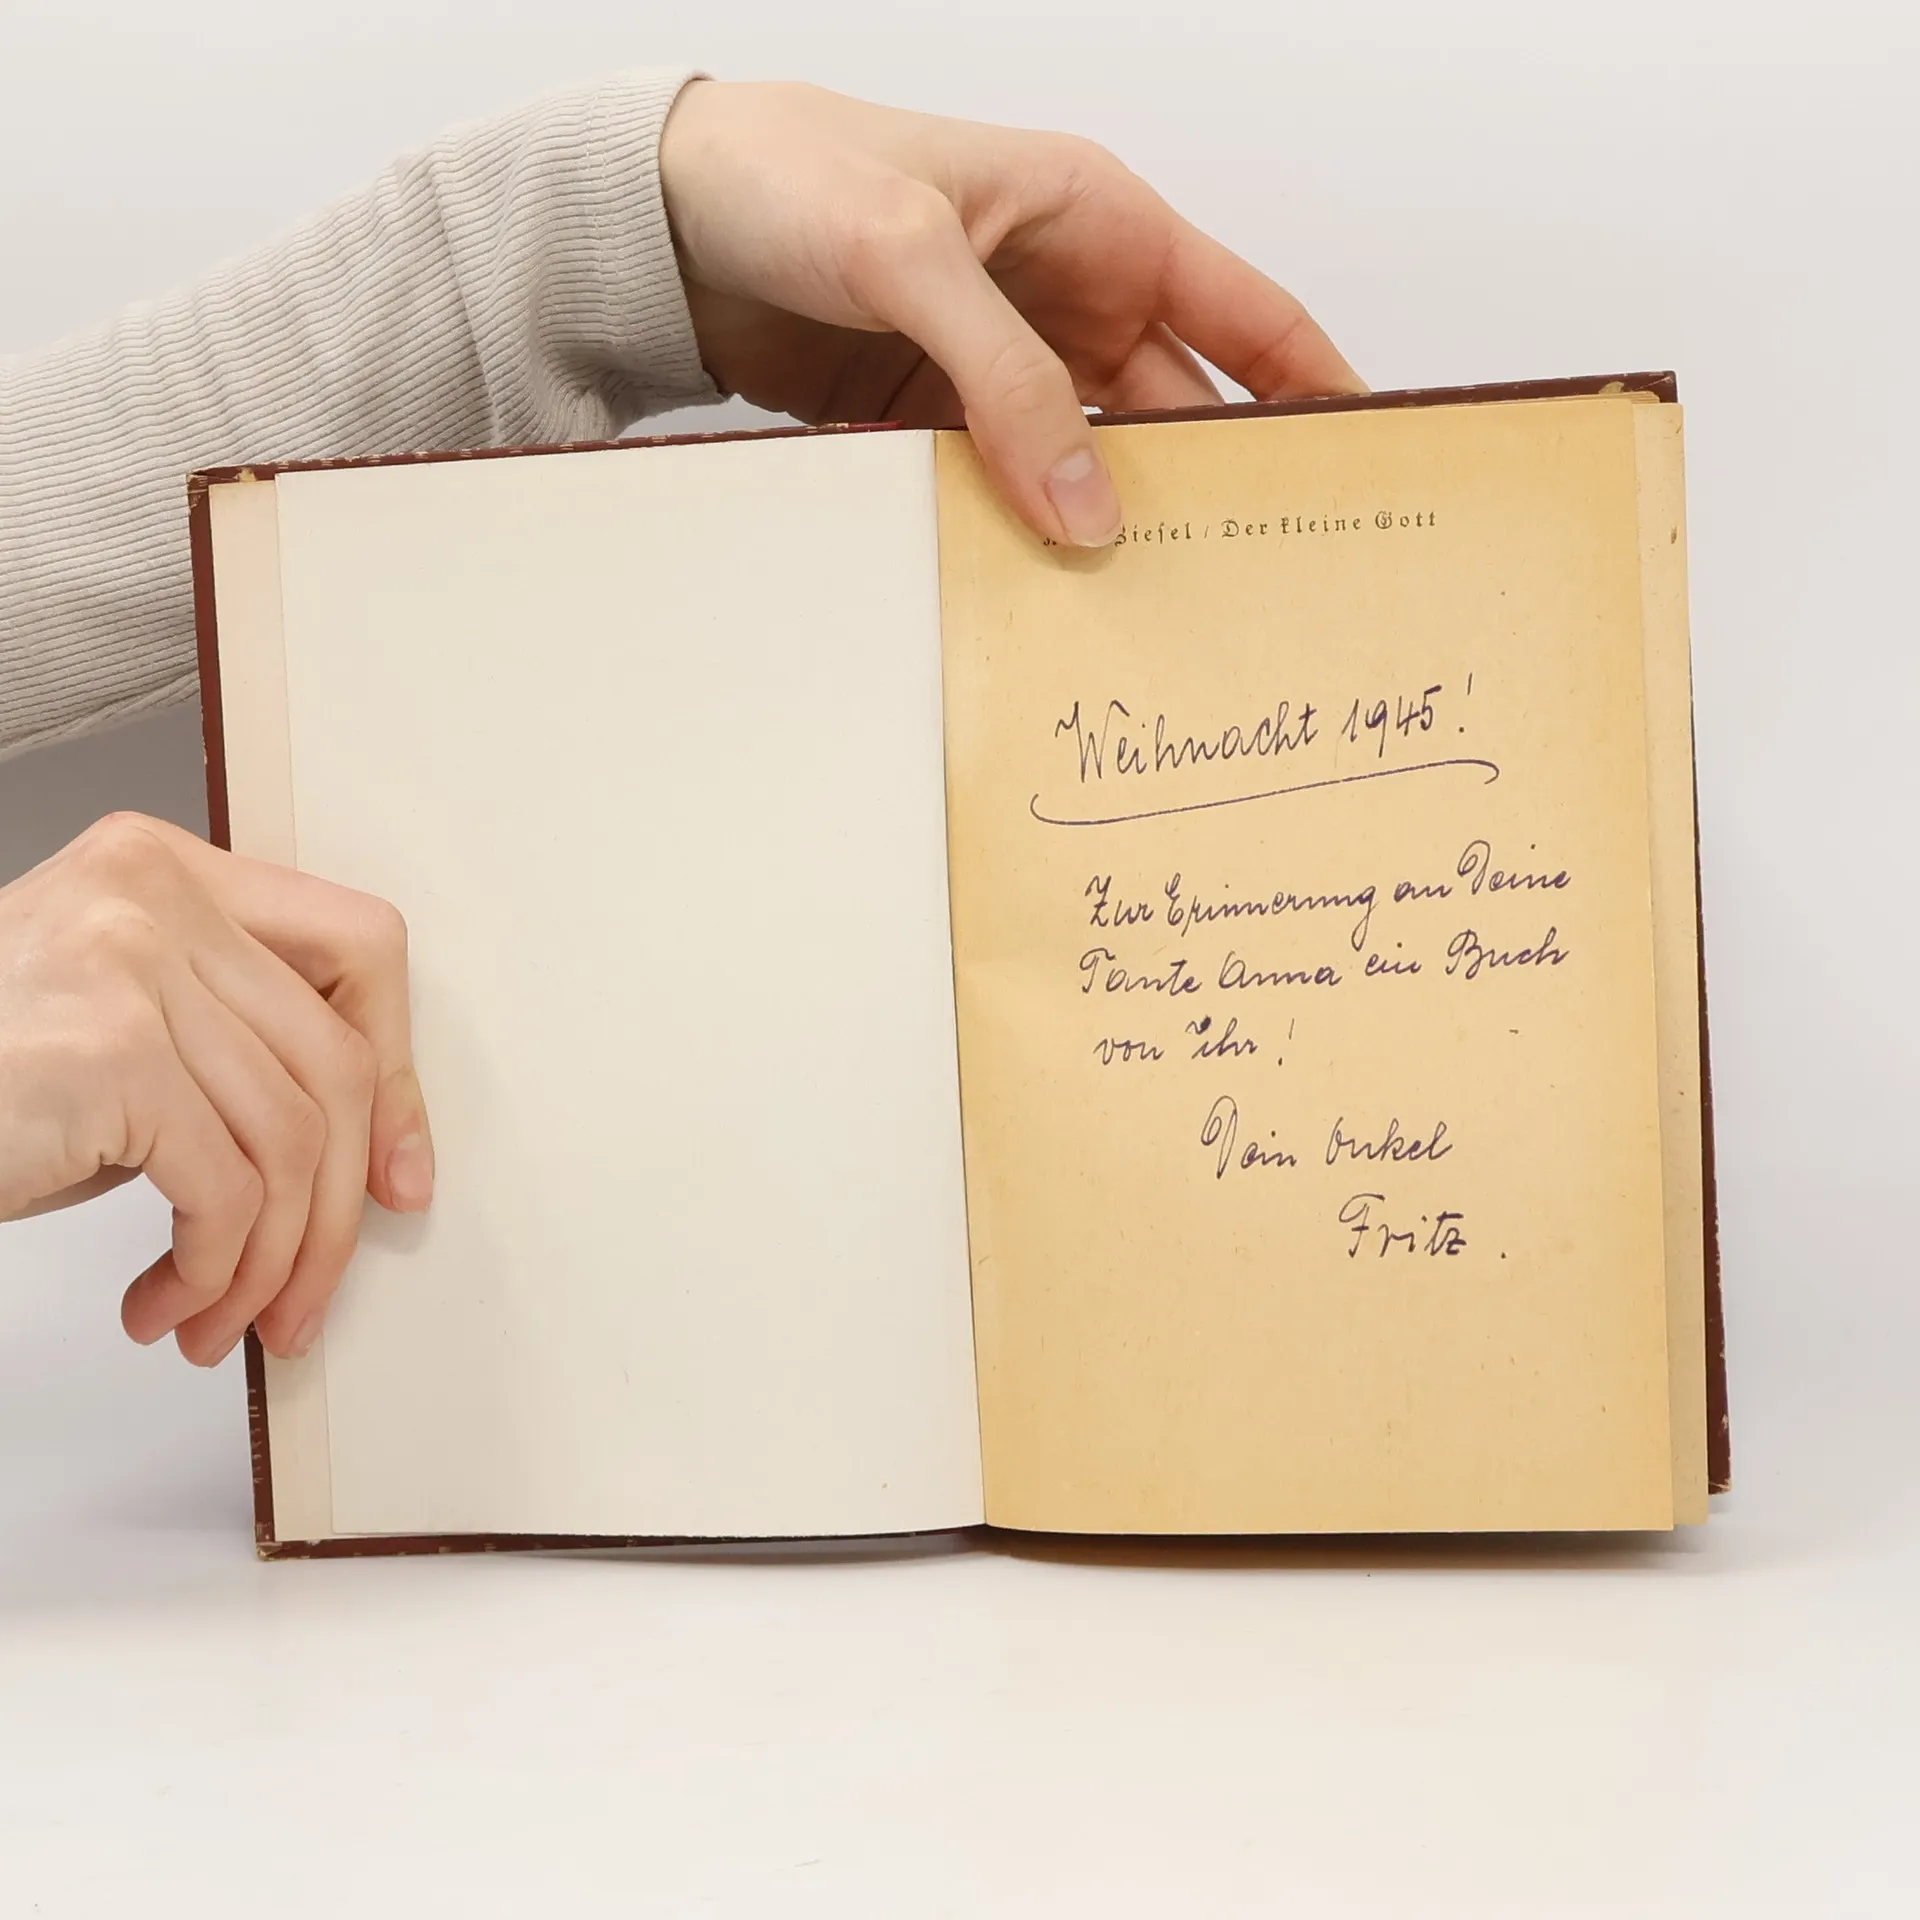 Ziesel / Der kleine Gott
Weihnacht 1945!
Zur Erinnerung an Deine
Tante Anna ein Buch
von Ihr!
Dein Onkel
Fritz.